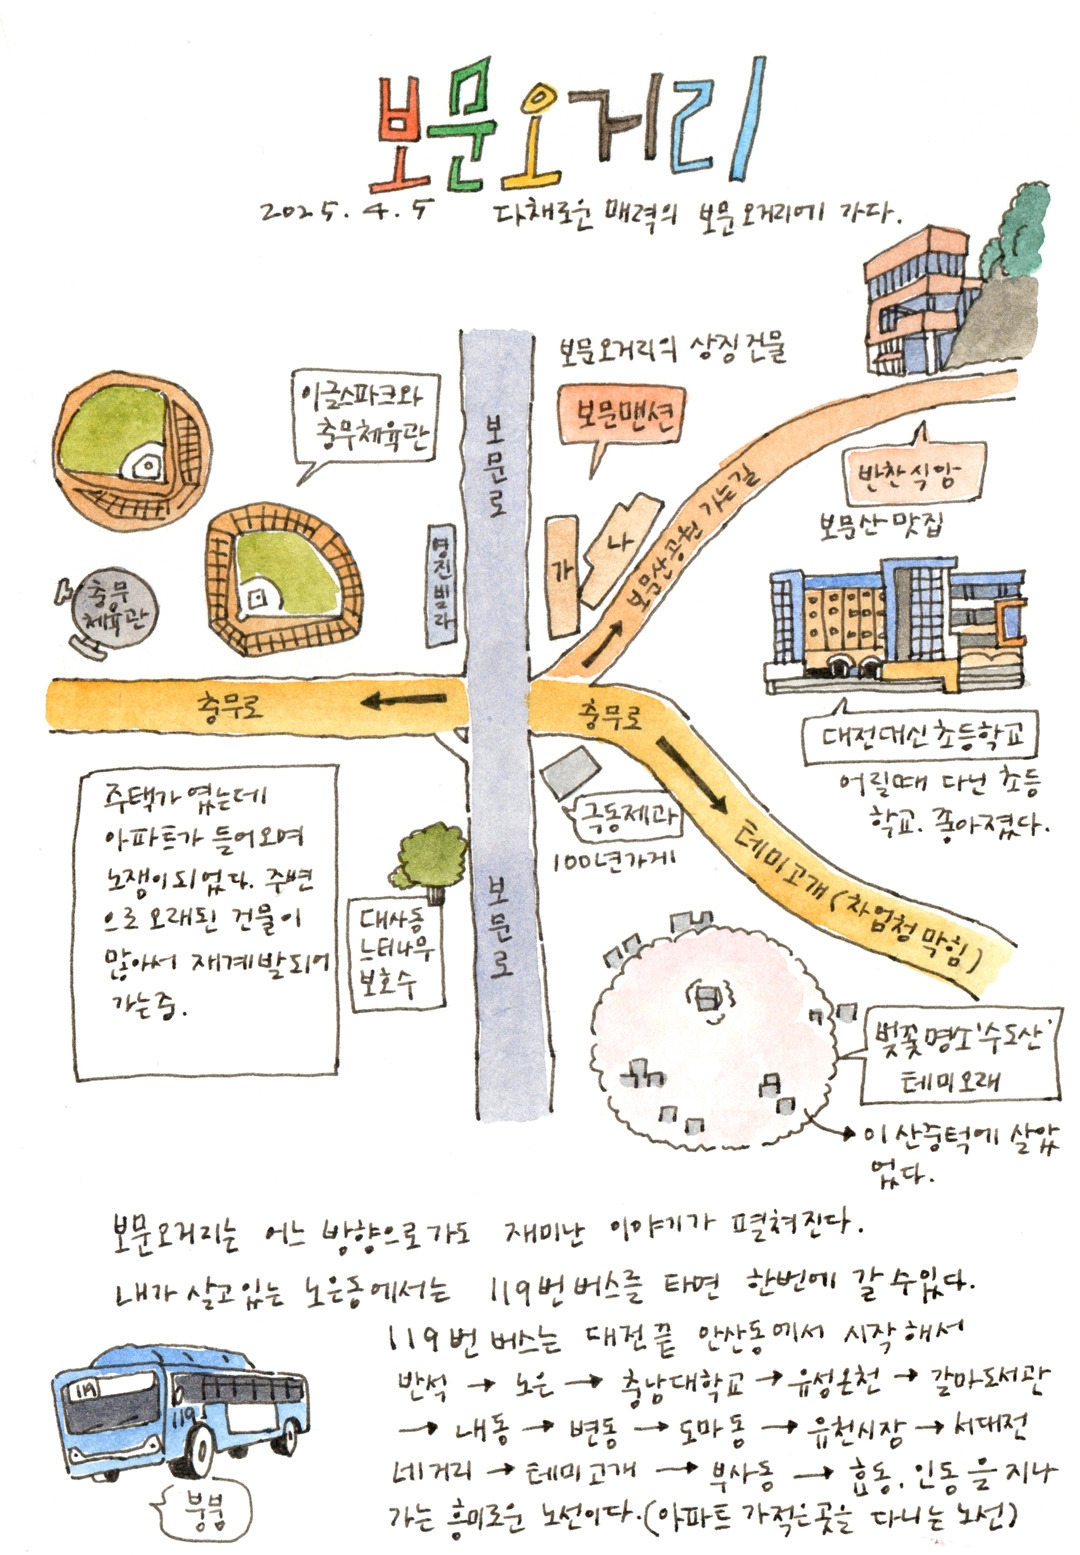 보문오거리
2025. 4. 5 다채로운 매력의 보문오거리에 가다.
보문오거리의 상징건물
이글스파크와
충무체육관
보문맨션
보문로
반찬식당
보문산 맛집
영진빌라
가
나
보문산공원 가는길
충무
체육관
충무로
충무로
대전대신초등학교
어릴때 다닌 초등
학교. 좋아졌다.
주택가 였는데
아파트가 들어오며
노잼이 되었다. 주변
으로 오래된 건물이
많아서 재개발되어
가는중.
극동제과
100년가게
테미고개(차엄청막힘)
보문로
대사동
느티나무
보호수
벚꽃명소 '수도산'
테미오래
이 산중턱에 살았
었다.
보문오거리는 어느 방향으로가도 재미난 이야기가 펼쳐진다.
내가 살고있는 노은동에서는 119번버스를 타면 한번에 갈수있다.
119번 버스는 대전끝 안산동에서 시작해서
반석 → 노은 → 충남대학교 → 유성온천 → 갈마도서관
→ 내동 → 변동 → 도마동 → 유천시장 → 서대전
네거리 → 테미고개 → 부사동 → 효동, 인동을 지나
가는 흥미로운 노선이다.(아파트가적은곳을 다니는 노선)
119
119
붕붕